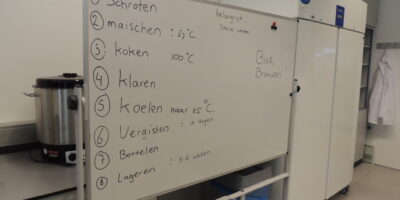 ① Schroten
② maischen : 67°C
③ koken 100°C
④ klaren
⑤ Koelen naar 25°C
⑥ Vergisten : 10 dagen
⑦ Bottelen
⑧ Lageren : 3-6 weken
belangrijk!
Bier
Brouwen!